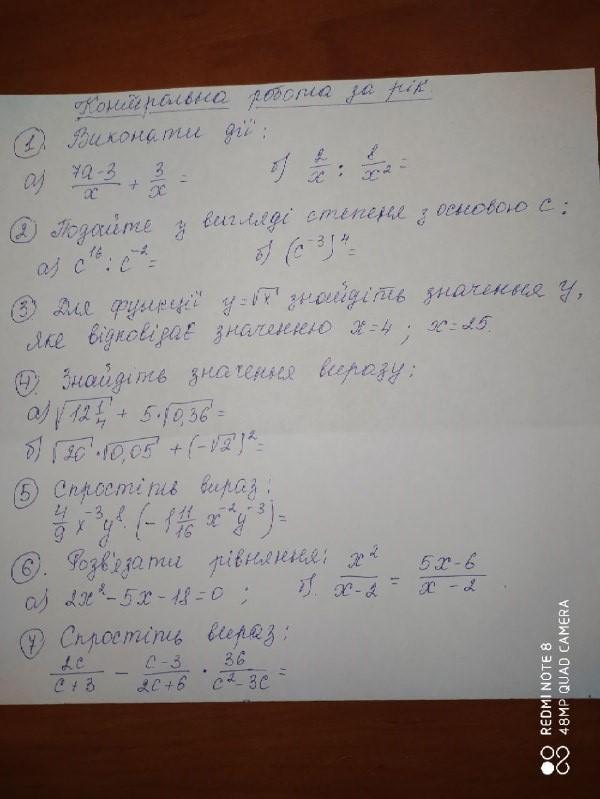 Контрольна робота за рік
1. Виконати дії:
а) (7a-3)/x + 3/x = б) 2/x : 8/x² =
2 Подайте у вигляді степеня з основою с:
а) c¹⁶ : c⁻² = б) (c⁻³)⁴ =
3 Для функції y=√x знайдіть значення y,
яке відповідає значенню x=4; x=25.
4. Знайдіть значення виразу:
а) √(12 1/4) + 5·√0,36 =
б) √20 · √0,05 + (-√2)² =
5 Спростіть вираз:
4/9 x⁻³y⁸ · (-1 11/16 x⁻²y⁻³) =
6. Розв'язати рівняння:
а) 2x²-5x-18=0; б). x²/(x-2) = (5x-6)/(x-2).
7 Спростіть вираз:
2c/(c+3) - (c-3)/(2c+6) · 36/(c²-3c) =
REDMI NOTE 8
48MP QUAD CAMERA